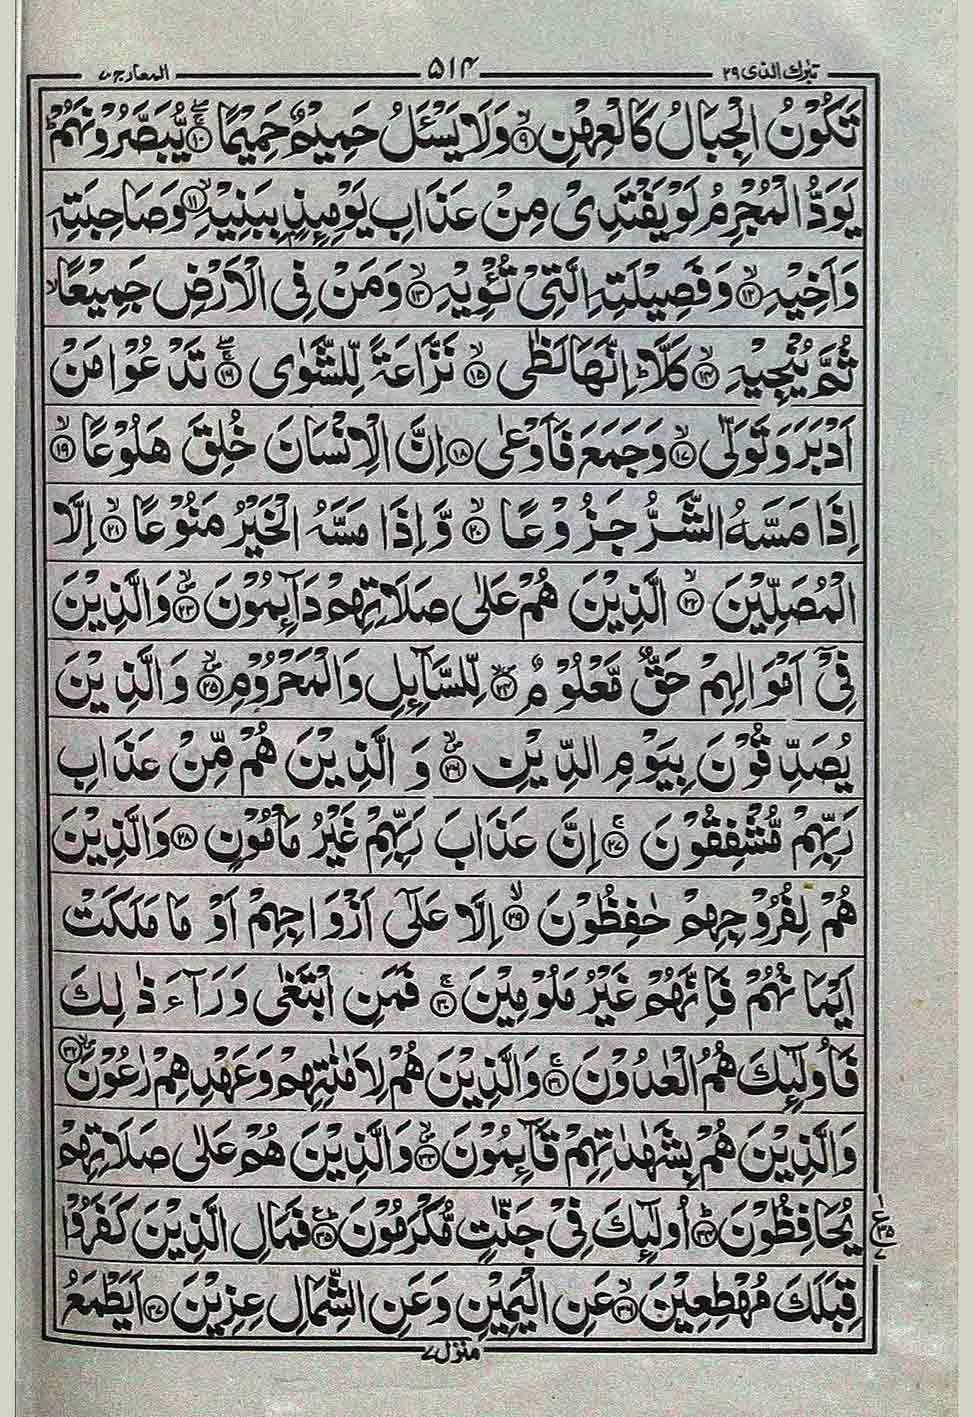 تبٰرك الذى ٢٩ ٥١٤ المعارج ٧٠
تَكُوْنُ الْجِبَالُ كَالْعِهْنِ ۙ﴿٩﴾ وَلَا يَسْـَٔلُ حَمِيْمٌ حَمِيْمًا ۚۖ﴿١٠﴾ يُّبَصَّرُوْنَهُمْ ؕ
يَوَدُّ الْمُجْرِمُ لَوْ يَفْتَدِىْ مِنْ عَذَابِ يَوْمِئِذٍۭ بِبَنِيْهِ ۙ﴿١١﴾ وَصَاحِبَتِهٖ
وَاَخِيْهِ ۙ﴿١٢﴾ وَفَصِيْلَتِهِ الَّتِىْ تُـْٔوِيْهِ ۙ﴿١٣﴾ وَمَنْ فِى الْاَرْضِ جَمِيْعًا ۙ
ثُمَّ يُنْجِيْهِ ۙ﴿١٤﴾ كَلَّا ؕ اِنَّهَا لَظٰى ۙ﴿١٥﴾ نَزَّاعَةً لِّلشَّوٰى ۚۖ﴿١٦﴾ تَدْعُوْا مَنْ
اَدْبَرَ وَتَوَلّٰى ۙ﴿١٧﴾ وَجَمَعَ فَاَوْعٰى ﴿١٨﴾ اِنَّ الْاِنْسَانَ خُلِقَ هَلُوْعًا ۙ﴿١٩﴾
اِذَا مَسَّهُ الشَّرُّ جَزُوْعًا ۙ﴿٢٠﴾ وَّاِذَا مَسَّهُ الْخَيْرُ مَنُوْعًا ۙ﴿٢١﴾ اِلَّا
الْمُصَلِّيْنَ ۙ﴿٢٢﴾ الَّذِيْنَ هُمْ عَلٰى صَلَاتِهِمْ دَآئِمُوْنَ ۪ۙ﴿٢٣﴾ وَالَّذِيْنَ
فِىْۤ اَمْوَالِهِمْ حَقٌّ مَّعْلُوْمٌ ۪ۙ﴿٢٤﴾ لِّلسَّآئِلِ وَالْمَحْرُوْمِ ۪ۙ﴿٢٥﴾ وَالَّذِيْنَ
يُصَدِّقُوْنَ بِيَوْمِ الدِّيْنِ ۪ۙ﴿٢٦﴾ وَالَّذِيْنَ هُمْ مِّنْ عَذَابِ
رَبِّهِمْ مُّشْفِقُوْنَ ۚ﴿٢٧﴾ اِنَّ عَذَابَ رَبِّهِمْ غَيْرُ مَاْمُوْنٍ ﴿٢٨﴾ وَالَّذِيْنَ
هُمْ لِفُرُوْجِهِمْ حٰفِظُوْنَ ۙ﴿٢٩﴾ اِلَّا عَلٰٓى اَزْوَاجِهِمْ اَوْ مَا مَلَكَتْ
اَيْمَانُهُمْ فَاِنَّهُمْ غَيْرُ مَلُوْمِيْنَ ۚ﴿٣٠﴾ فَمَنِ ابْتَغٰى وَرَآءَ ذٰلِكَ
فَاُولٰٓئِكَ هُمُ الْعٰدُوْنَ ۚ﴿٣١﴾ وَالَّذِيْنَ هُمْ لِاَمٰنٰتِهِمْ وَعَهْدِهِمْ رٰعُوْنَ ۪ۙ﴿٣٢﴾
وَالَّذِيْنَ هُمْ بِشَهٰدٰتِهِمْ قَآئِمُوْنَ ۪ۙ﴿٣٣﴾ وَالَّذِيْنَ هُمْ عَلٰى صَلَاتِهِمْ
يُحَافِظُوْنَ ؕ﴿٣٤﴾ اُولٰٓئِكَ فِىْ جَنّٰتٍ مُّكْرَمُوْنَ ؕ﴿٣٥﴾ فَمَالِ الَّذِيْنَ كَفَرُوْا
قِبَلَكَ مُهْطِعِيْنَ ۙ﴿٣٦﴾ عَنِ الْيَمِيْنِ وَعَنِ الشِّمَالِ عِزِيْنَ ﴿٣٧﴾ اَيَطْمَعُ
منزل ٧